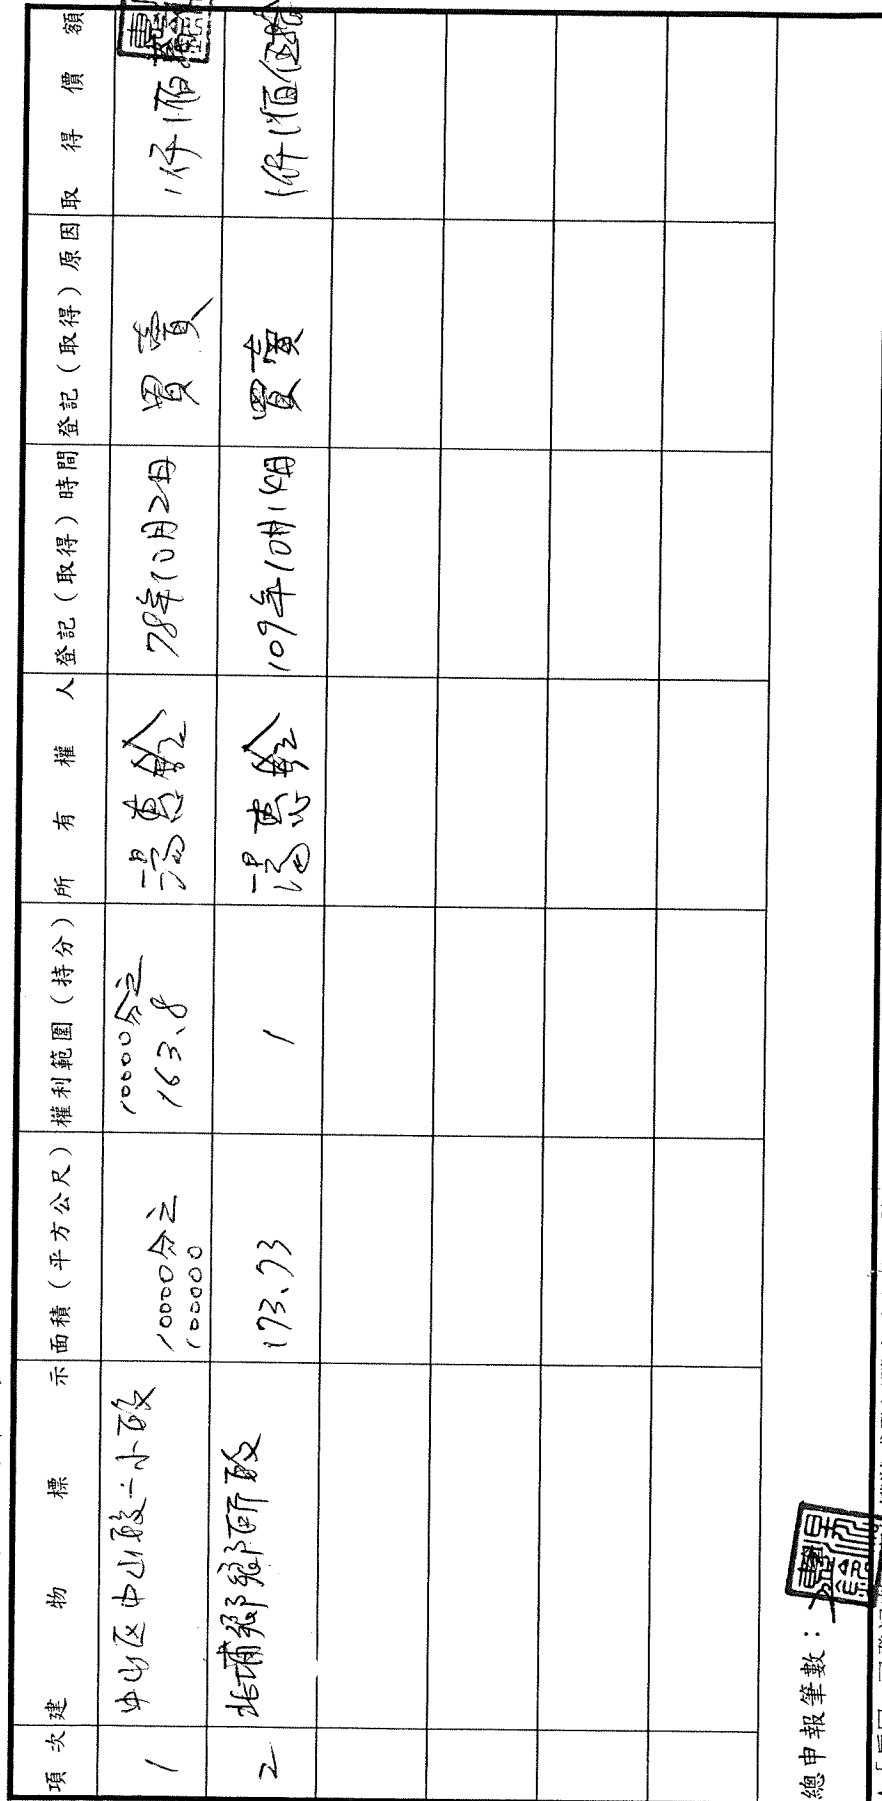 項次 建物標示 面積(平方公尺) 權利範圍(持分) 所有權人 登記(取得)時間 登記(取得)原因 取得價額
1 中山区中山段一小段 10000分之 100000 10000分之 163.8 湯惠 78年10月2日 買賣 1仟1佰
2 北埔鄉 段 173.73 1 湯惠 109年10月14日 買賣 1仟1佰伍拾
總申報筆數: